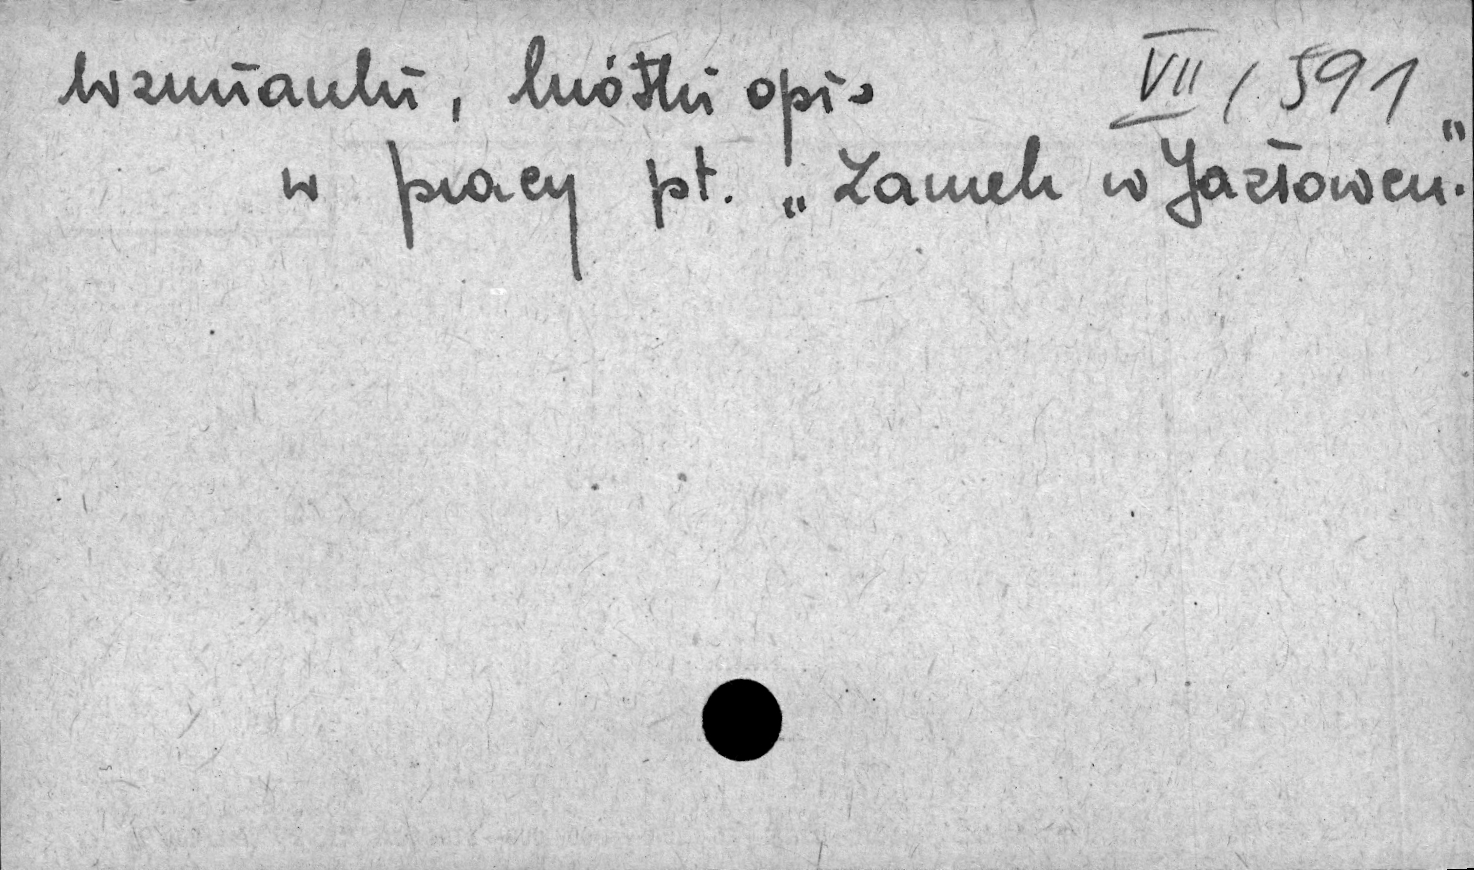 Wzmianki, krótki opis VII / 591
w pracy pt. „Zamek w Jazłowcu."